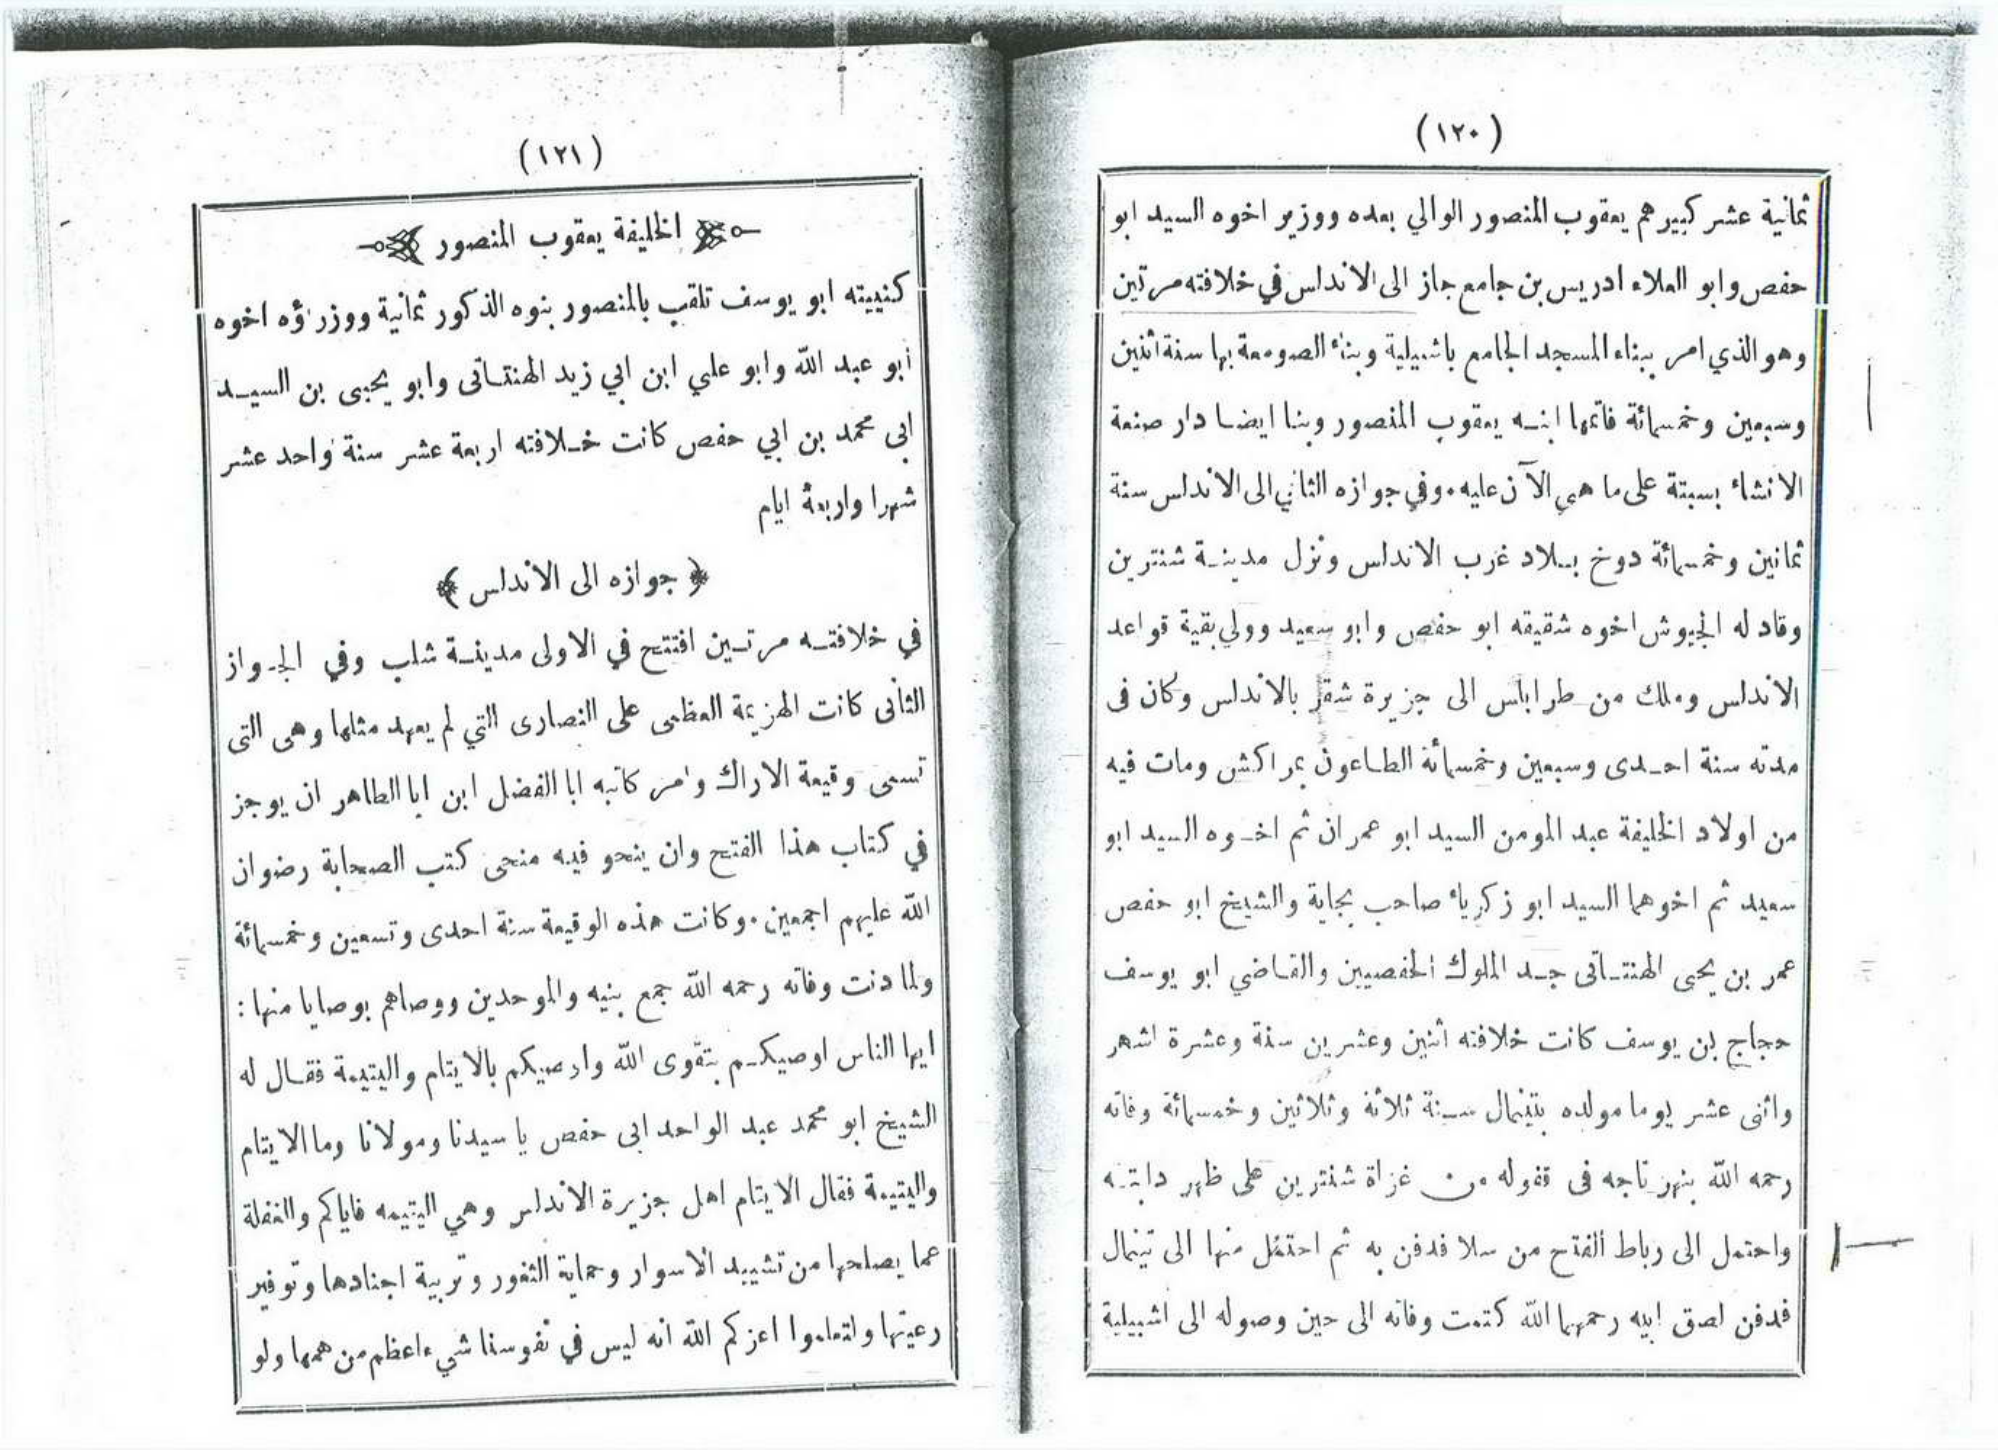 (١٢٠)
ثمانية عشر كبيرهم يعقوب المنصور الوالي بعده ووزير اخوه السيد ابو
حفص وابو العلاء ادريس بن جامع جاز الى الاندلس في خلافته مرتين
وهو الذي امر ببناء المسجد الجامع باشبيلية وبناء الصومعة بها سنة اثنين
وسبعين وخمسمائة فاتمها ابنه يعقوب المنصور وبنا ايضا دار صنعة
الانشاء بسبتة على ما هي الآن عليه . وفي جوازه الثاني الى الاندلس سنة
ثمانين وخمسمائة دوخ بلاد غرب الاندلس ونزل مدينة شنترين
وقاد له الجيوش اخوه شقيقه ابو حفص وابو سعيد وولي بقية قواعد
الاندلس وملك من طرابلس الى جزيرة شقر بالاندلس وكان فى
مدته سنة احدى وسبعين وخمسمائة الطاعون بمراكش ومات فيه
من اولاد الخليفة عبد المومن السيد ابو عمران ثم اخوه السيد ابو
سعيد ثم اخوهما السيد ابو زكرياء صاحب بجاية والشيخ ابو حفص
عمر بن يحيى الهنتاتى جد الملوك الحفصيين والقاضي ابو يوسف
حجاج بن يوسف كانت خلافته اثنين وعشرين سنة وعشرة اشهر
واثنى عشر يوما مولده بتينمال سنة ثلاثة وثلاثين وخمسمائة وفاته
رحمه الله بنهر تاجه فى قفوله من غزاة شنترين على ظهر دابته
واحتمل الى رباط الفتح من سلا فدفن به ثم احتمل منها الى تينمال
فدفن لصق ابيه رحمهما الله كتمت وفاته الى حين وصوله الى اشبيلية
(١٢١)
الخليفة يعقوب المنصور
كنييته ابو يوسف تلقب بالمنصور بنوه الذكور ثمانية ووزراؤه اخوه
أبو عبد الله وابو علي ابن ابي زيد الهنتاتى وابو يحيى بن السيد
ابى محمد بن ابي حفص كانت خلافته اربعة عشر سنة واحد عشر
شهرا واربعة ايام
﴿ جوازه الى الاندلس ﴾
في خلافته مرتين افتتح في الاولى مدينة شلب وفي الجواز
الثانى كانت الهزيمة العظمى على النصارى التي لم يعهد مثلها وهى التى
تسمى وقيعة الاراك وامر كاتبه ابا الفضل ابن ابا الطاهر ان يوجز
في كتاب هذا الفتح وان ينحو فيه منحى كتب الصحابة رضوان
الله عليهم اجمعين . وكانت هذه الوقيعة سنة احدى وتسعين وخمسمائة
ولما دنت وفاته رحمه الله جمع بنيه والموحدين ووصاهم بوصايا منها :
ايها الناس اوصيكم بتقوى الله واوصيكم بالايتام واليتيمة فقال له
الشيخ ابو محمد عبد الواحد ابى حفص يا سيدنا ومولانا وما الايتام
واليتيمة فقال الايتام اهل جزيرة الاندلس وهي اليتيمه فاياكم والغفلة
عما يصلحها من تشييد الاسوار وحماية الثغور وتربية اجنادها وتوفير
رعيتها ولتعلموا اعزكم الله انه ليس في نفوسنا شيء اعظم من همها ولو